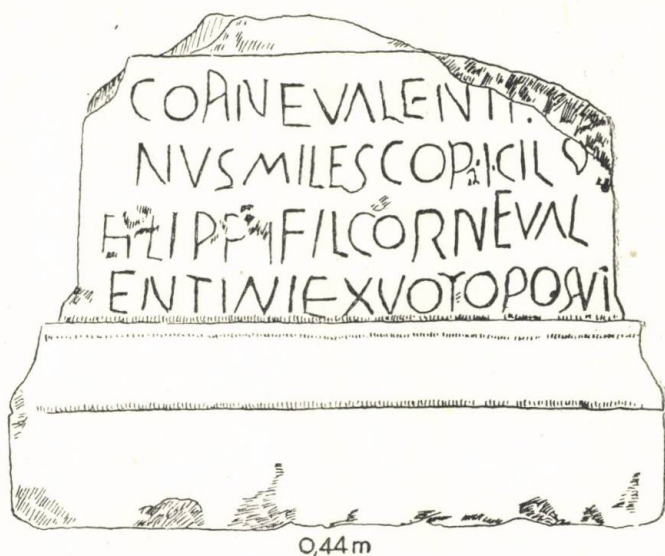 CORNEVALENTI
NVSMILESCOR·I·CIL
FILIPPIFILCORNEVAL
ENTINIEXVOTOPOSVI
0,44 m